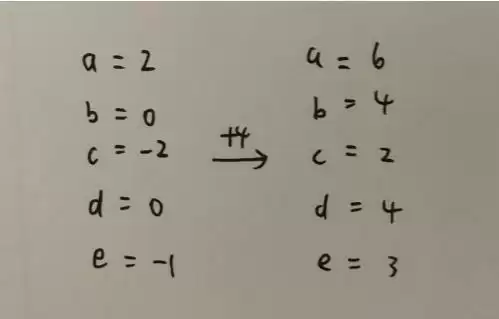 a = 2 a = 6
b = 0 b = 4
c = -2 +4 c = 2
d = 0 d = 4
e = -1 e = 3